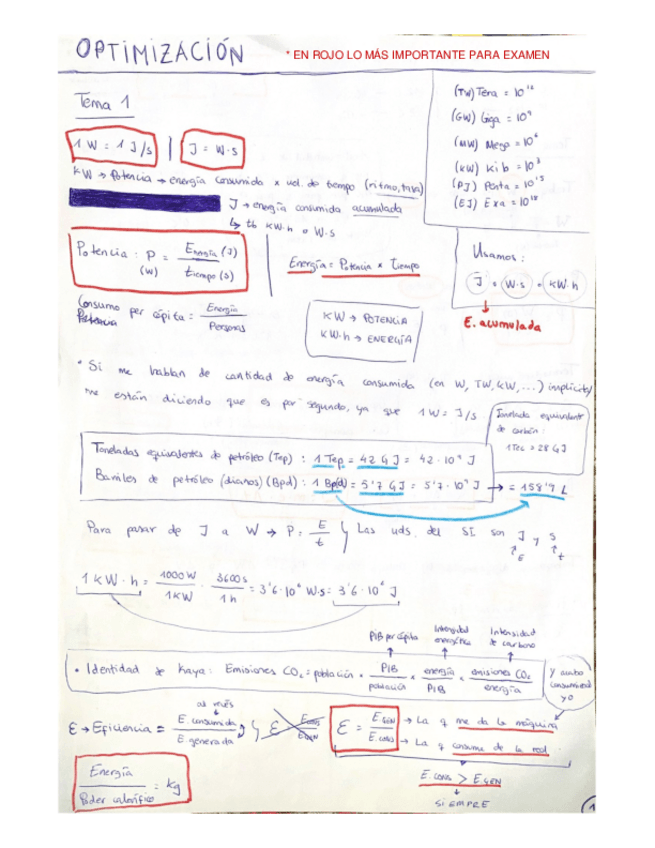 OPTIMIZACIÓN
* EN ROJO LO MÁS IMPORTANTE PARA EXAMEN
Tema 1
(TW) Tera = 10¹²
(GW) Giga = 10⁹
(MW) Mega = 10⁶
(KW) Kilo = 10³
(PJ) Penta = 10¹⁵
(EJ) Exa = 10¹⁸
1 W = 1 J/s | J = W·s
KW → Potencia → energía consumida x ud. de tiempo (ritmo, tasa)
J → energía consumida acumulada
↳ tb KW·h o W·s
Potencia: P = Energía (J) / tiempo (s)
(W)
Energía = Potencia * Tiempo
Usamos:
J = W·s = KW·h
E. acumulada
Consumo per cápita = Energía / Personas
Potencia
KW → POTENCIA
KW·h → ENERGÍA
* Si me hablan de cantidad de energía consumida (en W, TW, KW, ...)
me están diciendo que es por segundo, ya que 1W = J/s
Tonelada equivalente
de carbón:
1Tec = 28 GJ
Toneladas equivalentes de petróleo (Tep): 1 Tep = 42 GJ = 42·10⁹ J
Barriles de petróleo (diarios) (Bpd): 1 Bp(d) = 5'7 GJ = 5'7·10⁹ J → = 158'9 L
Para pasar de J a W → P = E / t
Las uds. del SI son J y s
E t
1 KW·h = 1000 W / 1 KW · 3600 s / 1 h = 3'6·10⁶ W·s = 3'6·10⁶ J
PIB per cápita
Intensidad energética
Intensidad de carbono
• Identidad de Kaya: Emisiones CO₂ = población * PIB / población * energía / PIB * emisiones CO₂ / energía
al revés
ε → Eficiencia = E. consumida / E. generada
ε = E.GEN / E.CONS
→ La q me da la máquina
→ La q consume de la red
E. CONS > E. GEN
SIEMPRE
Energía / Poder calorífico = Kg
1